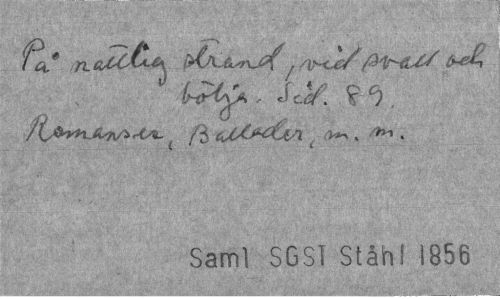 På nattlig strand, vid svall och
bölja. Sid. 89.
Romanser, Ballader, m. m.
Saml SGST Ståhl 1856